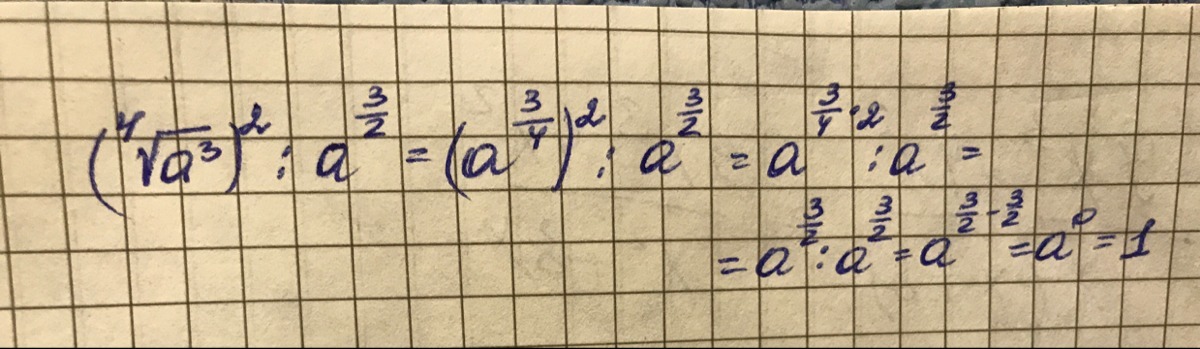 (⁴√a³)² : a^(3/2) = (a^(3/4))² : a^(3/2) = a^(3/4 · 2) : a^(3/2) =
= a^(3/2) : a^(3/2) = a^(3/2 - 3/2) = a⁰ = 1